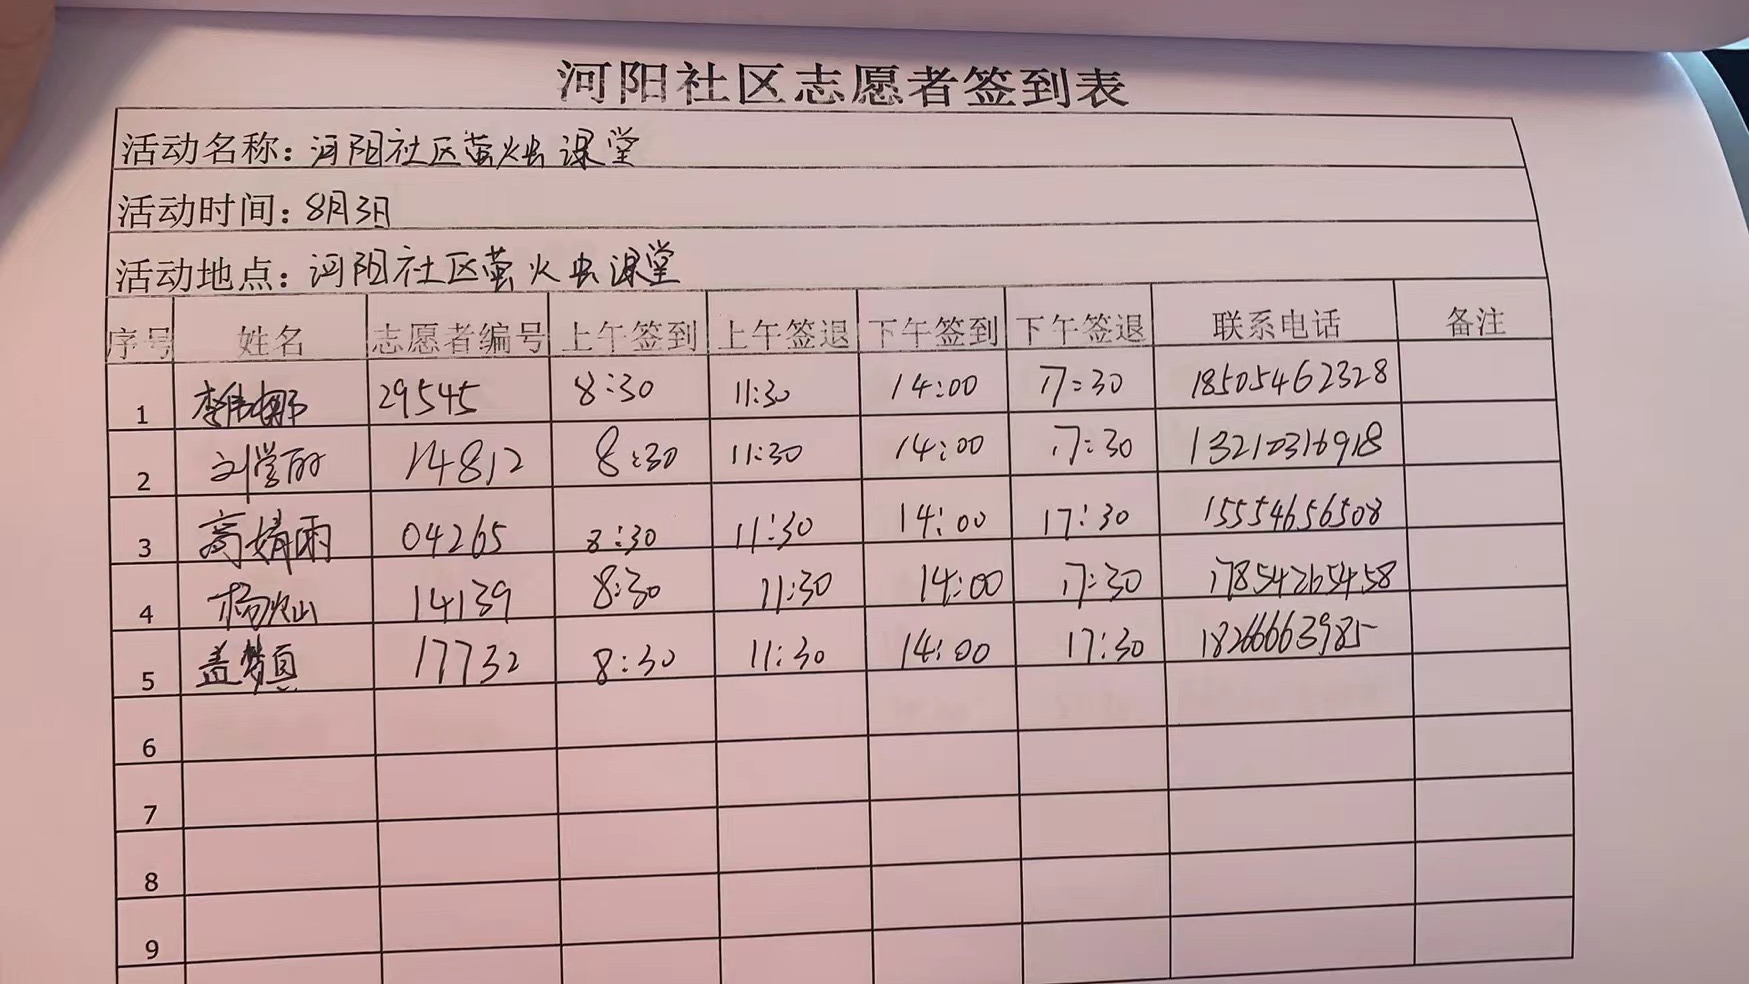 河阳社区志愿者签到表
活动名称：河阳社区萤火虫课堂
活动时间：8月3日
活动地点：河阳社区萤火虫课堂
序号 姓名 志愿者编号 上午签到 上午签退 下午签到 下午签退 联系电话 备注
1 李伟娜 29545 8:30 11:30 14:00 17:30 18505462328
2 刘学丽 14812 8:30 11:30 14:00 17:30 13210316918
3 高婧雨 04265 8:30 11:30 14:00 17:30 15554656508
4 14139 8:30 11:30 14:00 17:30 17854265458
5 盖梦真 17732 8:30 11:30 14:00 17:30 18266663985
6
7
8
9